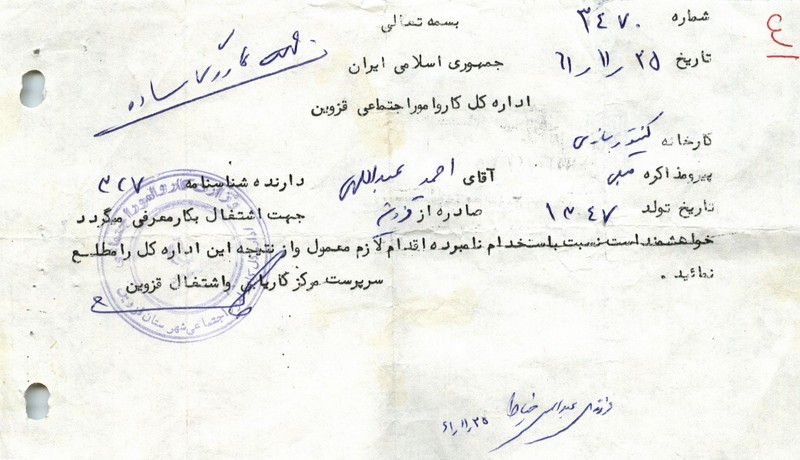 بسمه تعالی
شماره ۳۴۷۰
۴
جمهوری اسلامی ایران
تاریخ ۶۱/۱۱/۲۵
اداره کل کار و امور اجتماعی قزوین
ساده
کارخانه کنتور سازی
پیرو مذاکره آقای احمد عبداللهی دارنده شناسنامه ۳۲۷
تاریخ تولد ۱۳۴۷ صادره از قزوین جهت اشتغال بکار معرفی میگردد
خواهشمند است نسبت باستخدام نامبرده اقدام لازم معمول و از نتیجه این اداره کل را مطلع
نمائید .
سرپرست مرکز کاریابی و اشتغال قزوین
وزارت کار و امور اجتماعی
عبدالهی خیاط
۶۱/۱۱/۲۵